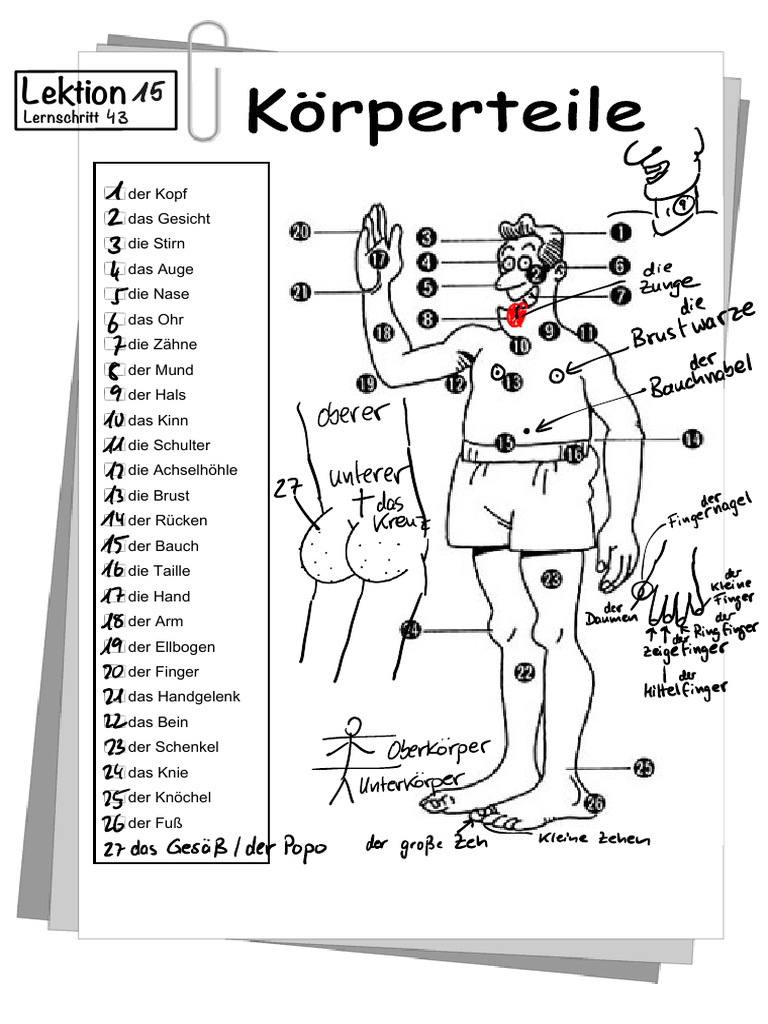 Lektion 15
Lernschritt 43
Körperteile
1 der Kopf
2 das Gesicht
3 die Stirn
4 das Auge
5 die Nase
6 das Ohr
7 die Zähne
8 der Mund
9 der Hals
10 das Kinn
11 die Schulter
12 die Achselhöhle
13 die Brust
14 der Rücken
15 der Bauch
16 die Taille
17 die Hand
18 der Arm
19 der Ellbogen
20 der Finger
21 das Handgelenk
22 das Bein
23 der Schenkel
24 das Knie
25 der Knöchel
26 der Fuß
27 das Gesäß / der Popo
9
20
3
1
4
17
2
6
21
5
7
8
18
9
11
10
19
12
13
15
14
16
23
24
22
25
26
die
Zunge
die
Brustwarze
der
Bauchnabel
oberer
unterer
27
das
Kreuz
der
Fingernagel
der
kleine
Finger
der
Daumen
der
Ringfinger
der
Zeigefinger
der
Mittelfinger
Oberkörper
Unterkörper
der große Zeh
kleine Zehen